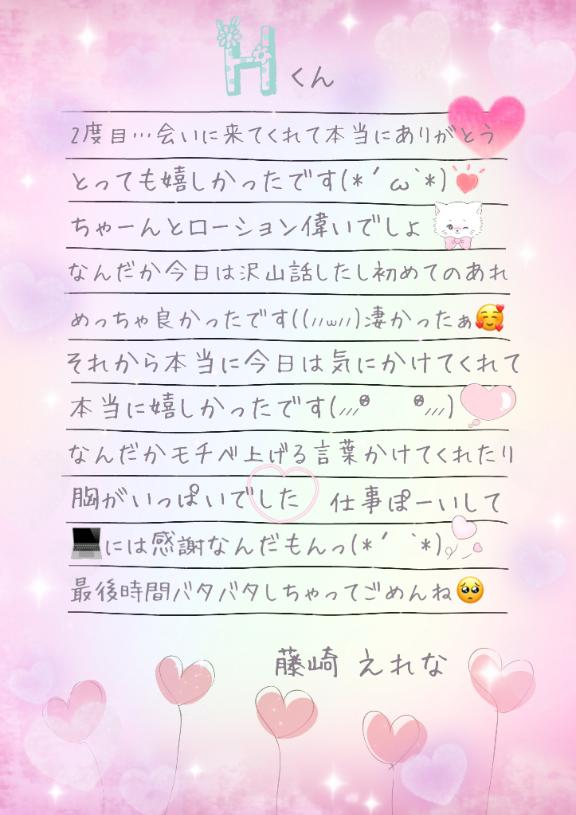 Hくん
2度目…会いに来てくれて本当にありがとう
とっても嬉しかったです(*´ω`*)
ちゃーんとローション偉いでしょ
なんだか今日は沢山話したし初めてのあれ
めっちゃ良かったです((//ω//)凄かったぁ🥰
それから本当に今日は気にかけてくれて
本当に嬉しかったです(⸝⸝⸝ᶿ ᶿ⸝⸝⸝)
なんだかモチベ上げる言葉かけてくれたり
胸がいっぱいでした 仕事ぽーいして
💻には感謝なんだもんっ(*´ `*)
最後時間バタバタしちゃってごめんね🥺
藤崎 えれな